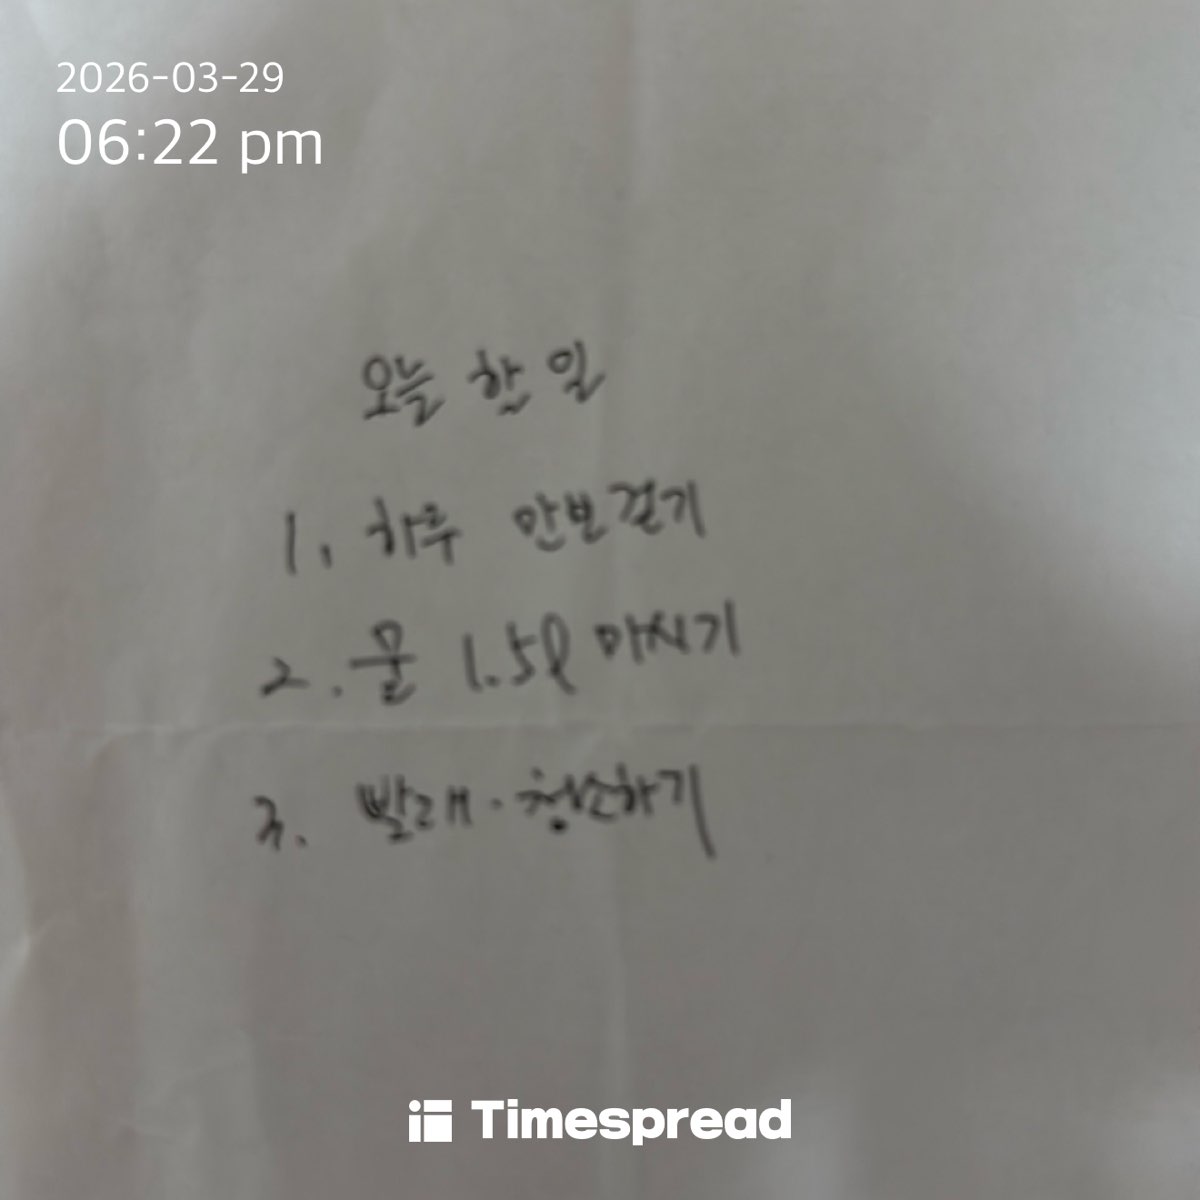 2026-03-29
06:22 pm
오늘 한 일
1. 하루 만보걷기
2. 물 1.5l 마시기
3. 빨래·청소하기
Timespread